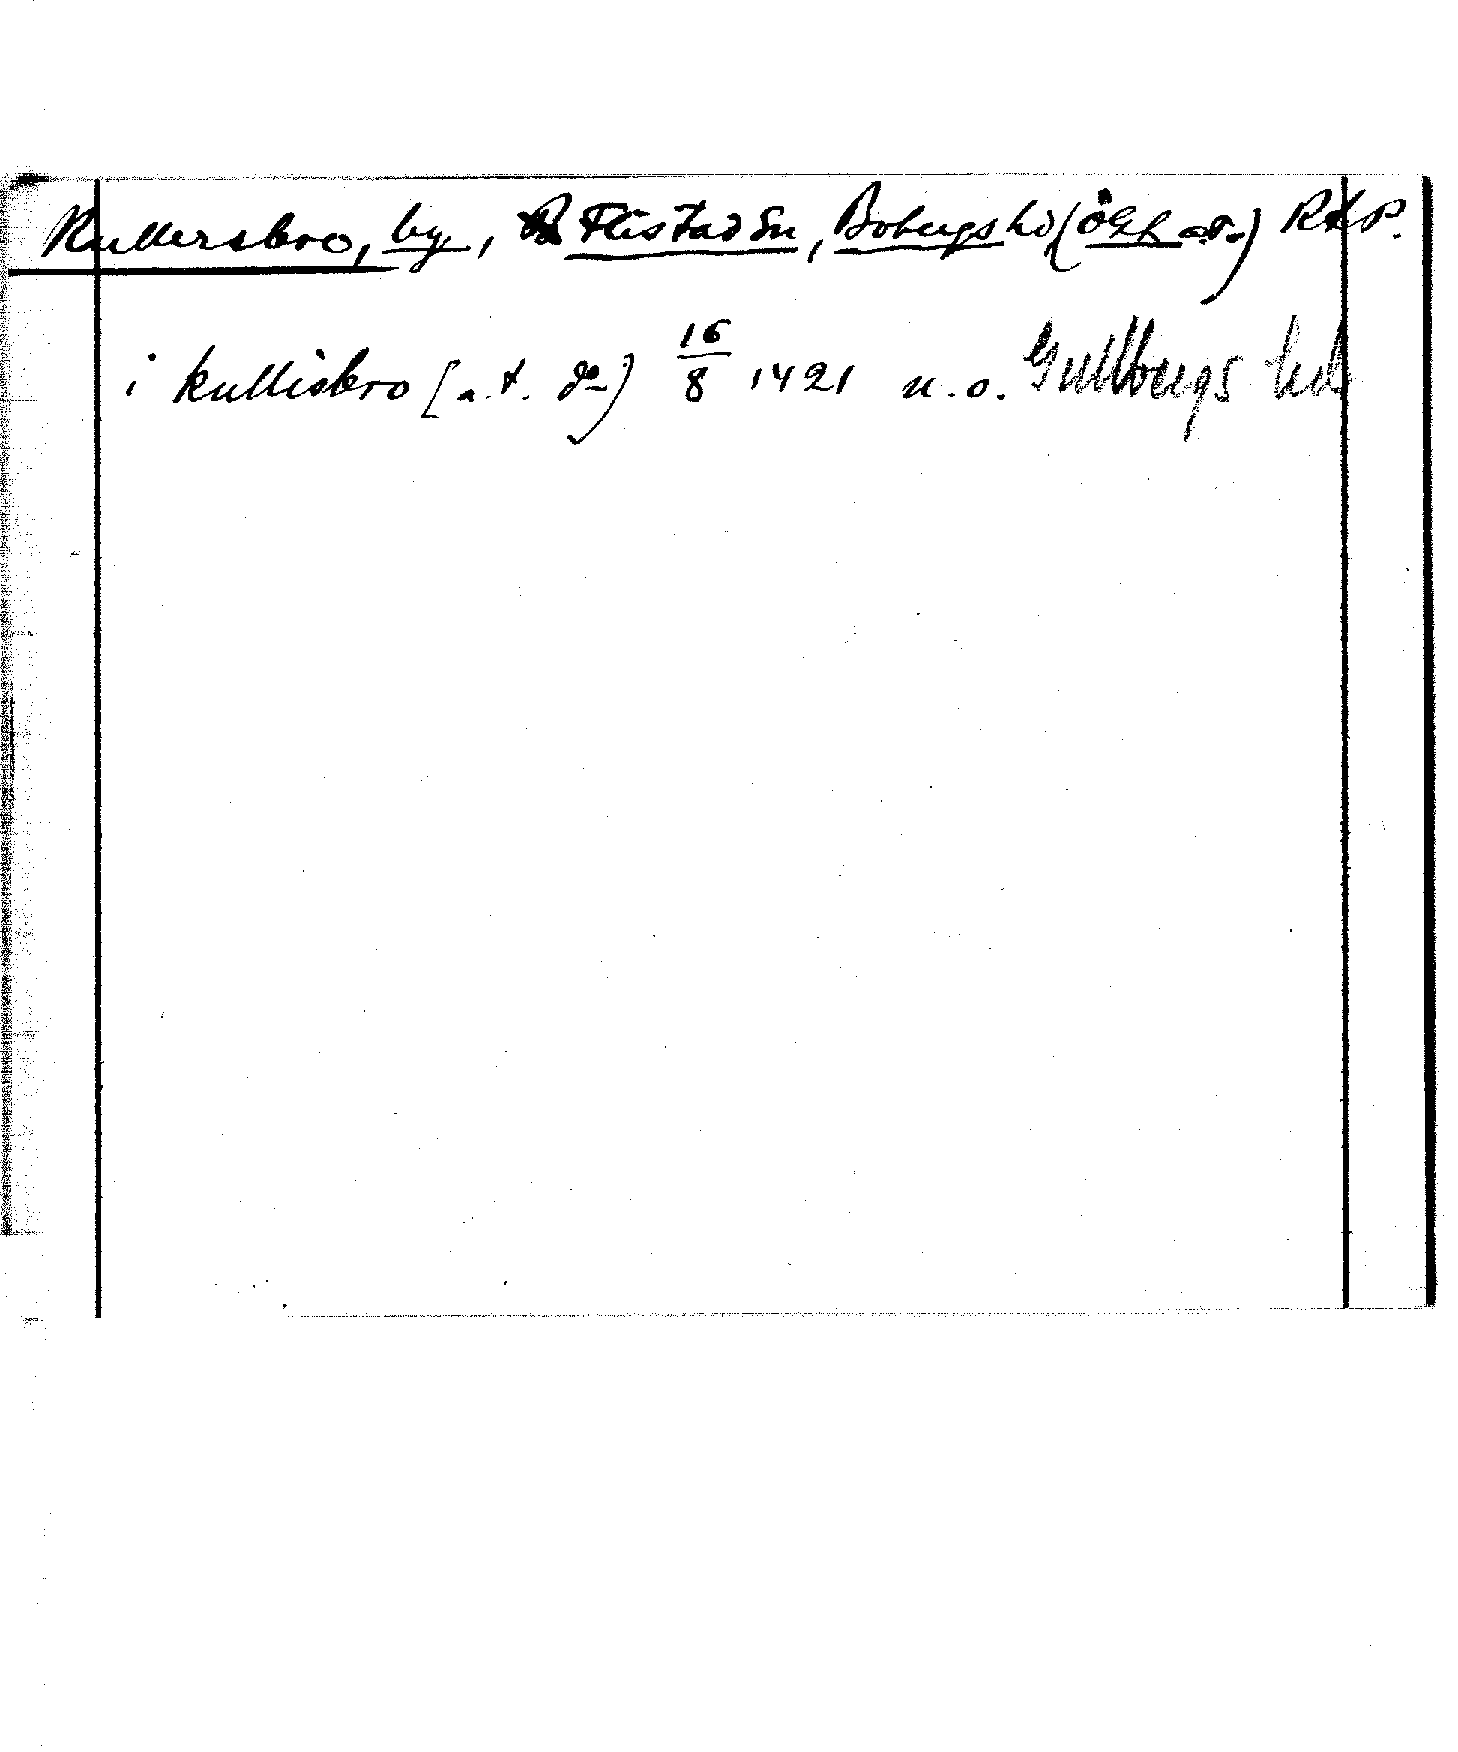 Kullersbro, by, Flistad Sn, Bobergs hd (Ögl a.o.) RAP.
i kullisbro (a.t. do) 16/8 1421 u.o. Gullbergs hd